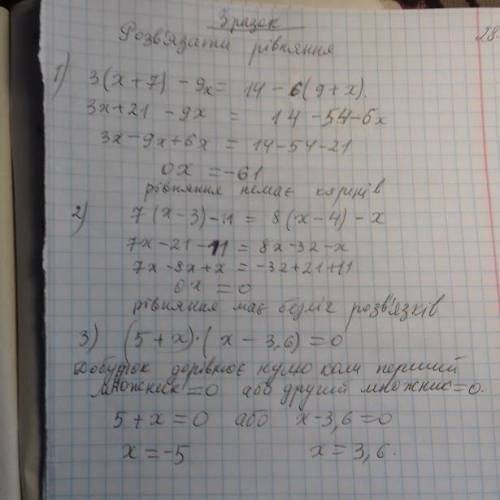 Зразок
28
Розв'язати рівняння
1) 3(x+7) - 9x = 14 - 6(9+x).
3x+21 - 9x = 14 - 54 - 6x
3x - 9x + 6x = 14 - 54 - 21
0x = -61
рівняння немає коренів
2) 7(x-3) - 11 = 8(x-4) - x
7x - 21 - 11 = 8x - 32 - x
7x - 8x + x = -32 + 21 + 11
0x = 0
рівняння має безліч розв'язків
3) (5+x)·(x-3,6) = 0
Добуток дорівнює нулю коли перший
множник = 0 або другий множник = 0.
5+x = 0 або x-3,6 = 0
x = -5 x = 3,6.